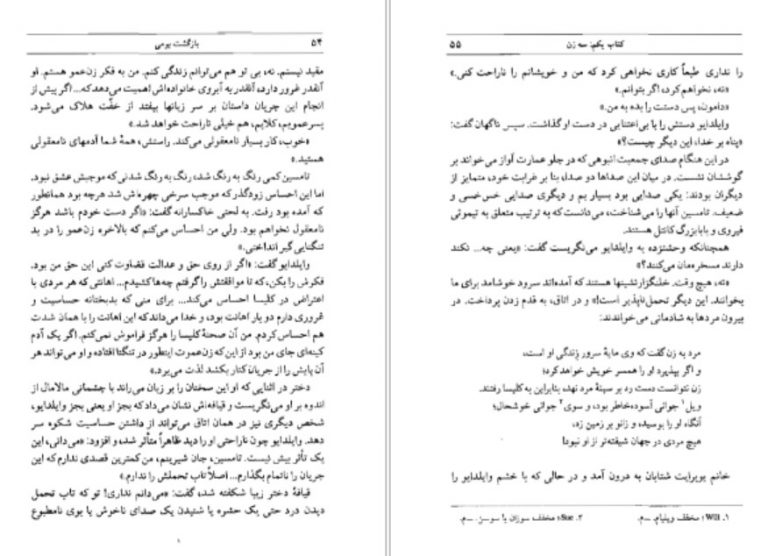 ۵۴
بازگشت بومی
مقید نیستم. نه، بی تو هم می‌توانم زندگی کنم. من به فکر زن‌عمو هستم. او
آنقدر غرور دارد، آنقدر به آبروی خانواده‌اش اهمیت می‌دهد که... اگر پیش از
انجام این جریان داستان بر سر زبانها بیفتد از خفّت هلاک می‌شود.
پسرعمویم، کلایم، هم خیلی ناراحت خواهد شد.»
«خوب، کار بسیار نامعقولی می‌کند. راستش، همهٔ شما آدمهای نامعقولی
هستید.»
تامسین کمی رنگ به رنگ شد، رنگ به رنگ شدنی که موجبش عشق نبود.
اما این احساس زودگذر که موجب سرخی چهره‌اش شد هرچه بود همانطور
که آمده بود رفت. به لحنی خاکسارانه گفت: «اگر دست خودم باشد هرگز
نامعقول نخواهم بود. ولی من احساس می‌کنم که بالاخره زن‌عمو را در بد
تنگنایی گیر انداختی.»
وایلدایو گفت: «اگر از روی حق و عدالت قضاوت کنی این حق من بود.
فکرش را بکن، که تا موافقتش را گرفتم چه‌ها کشیدم... اهانتی که هر مردی با
اعتراض در کلیسا احساس می‌کند... برای منی که بدبختانه حساسیت و
غروری دارم دو بار اهانت بود، و خدا می‌داند که این اهانت را با همان شدت
هم احساس کردم. من آن صحنهٔ کلیسا را هرگز فراموش نمی‌کنم. اگر یک آدم
کینه‌ای جای من بود از این که زن‌عمویت اینطور در تنگنا افتاده و او می‌تواند هر
آن پایش را از جریان کنار بکشد لذت می‌برد.»
دختر در اثنایی که او این سخنان را بر زبان می‌راند با چشمانی مالامال از
اندوه بر او می‌نگریست و قیافه‌اش نشان می‌داد که بجز او یعنی بجز وایلدایو،
شخص دیگری نیز در همان اتاق می‌تواند از داشتن حساسیت شکوه سر
دهد. وایلدایو چون ناراحتی او را دید ظاهراً متأثر شد، و افزود: «می‌دانی، این
یک تأثر بیش نیست. تامسین، جان شیرینم، من کمترین قصدی ندارم که این
جریان را ناتمام بگذارم... اصلاً تاب تحملش را ندارم.»
قیافهٔ دختر زیبا شکفته شد، گفت: «می‌دانم نداری! تو که تاب تحمل
دیدن درد حتی یک حشره یا شنیدن یک صدای ناخوش یا بوی نامطبوع
۵۵
کتاب یکم: سه زن
را نداری طبعاً کاری نخواهی کرد که من و خویشانم را ناراحت کنی.»
«نه، نخواهم کرد، اگر بتوانم.»
«دامون، پس دستت را بده به من.»
وایلدایو دستش را با بی‌اعتنایی در دست او گذاشت. سپس ناگهان گفت:
«پناه بر خدا، این دیگر چیست؟»
در این هنگام صدای جمعیت انبوهی که در جلو عمارت آواز می‌خواند بر
گوششان نشست. در میان این صداها دو صدا، بنا بر غرابت خود، متمایز از
دیگران بودند: یکی صدایی بود بسیار بم و دیگری صدایی خس‌خسی و
ضعیف. تامسین آنها را می‌شناخت، می‌دانست که به ترتیب متعلق به تیموثی
فیروی و بابابزرگ کانتل هستند.
همچنانکه وحشتزده به وایلدایو می‌نگریست گفت: «یعنی چه... نکند
دارند مسخره‌مان می‌کنند؟»
«نه، هیچ وقت. خلنگزارنشینها هستند که آمده‌اند سرود خوشامد برای ما
بخوانند. این دیگر تحمل‌ناپذیر است!» و در اتاق، به قدم زدن پرداخت. در
بیرون مردها به شادمانی می‌خواندند:
مرد به زن گفت که وی مایهٔ سرور زندگی او است،
و اگر بپذیرد او را همسر خویش خواهد کرد؛
زن نتوانست دست رد بر سینهٔ مرد نهد، بنابراین به کلیسا رفتند.
ویل۱ جوانی آسوده‌خاطر بود، و سوی۲ جوانی خوشحال؛
آنگاه او را بوسید، و زانو بر زمین زد،
هیچ مردی در جهان شیفته‌تر از او نبود!
خانم یوبرایت شتابان به درون آمد و در حالی که با خشم وایلدایو را
۱. Will؛ مخفف ویلیام. ــم. ۲. Sue؛ مخفف سوزان یا سوسن. ــم.